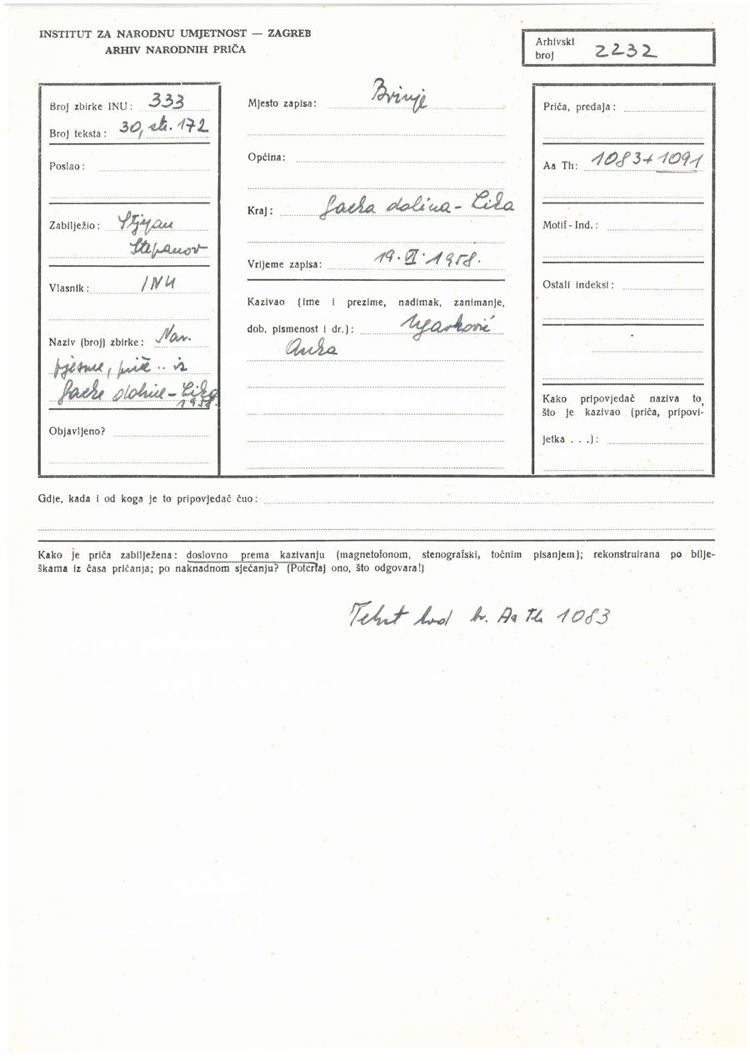 INSTITUT ZA NARODNU UMJETNOST — ZAGREB
ARHIV NARODNIH PRIČA
Arhivski broj 2232
Broj zbirke INU: 333
Broj teksta: 30, str. 172
Poslao:
Zabilježio: Stjepan
Stepanov
Vlasnik: INU
Naziv (broj) zbirke: Nar.
pjesme, prič.. iz
Gacke doline - Lika
1958.
Objavljeno?
Mjesto zapisa: Brinje
Općina:
Kraj: Gacka dolina - Lika
Vrijeme zapisa: 19. VI. 1958.
Kazivao (ime i prezime, nadimak, zanimanje,
dob, pismenost i dr.): Ugarković
Anka
Priča, predaja:
Aa Th: 1083 + 1091
Motif-Ind.:
Ostali indeksi:
Kako pripovjedač naziva to,
što je kazivao (priča, pripovi-
jetka . . .):
Gdje, kada i od koga je to pripovjedač čuo:
Kako je priča zabilježena: doslovno prema kazivanju (magnetofonom, stenografski, točnim pisanjem); rekonstruirana po bilje-
škama iz časa pričanja; po naknadnom sjećanju? (Potcrtaj ono, što odgovara!)
Tekst kod br. Aa Th 1083